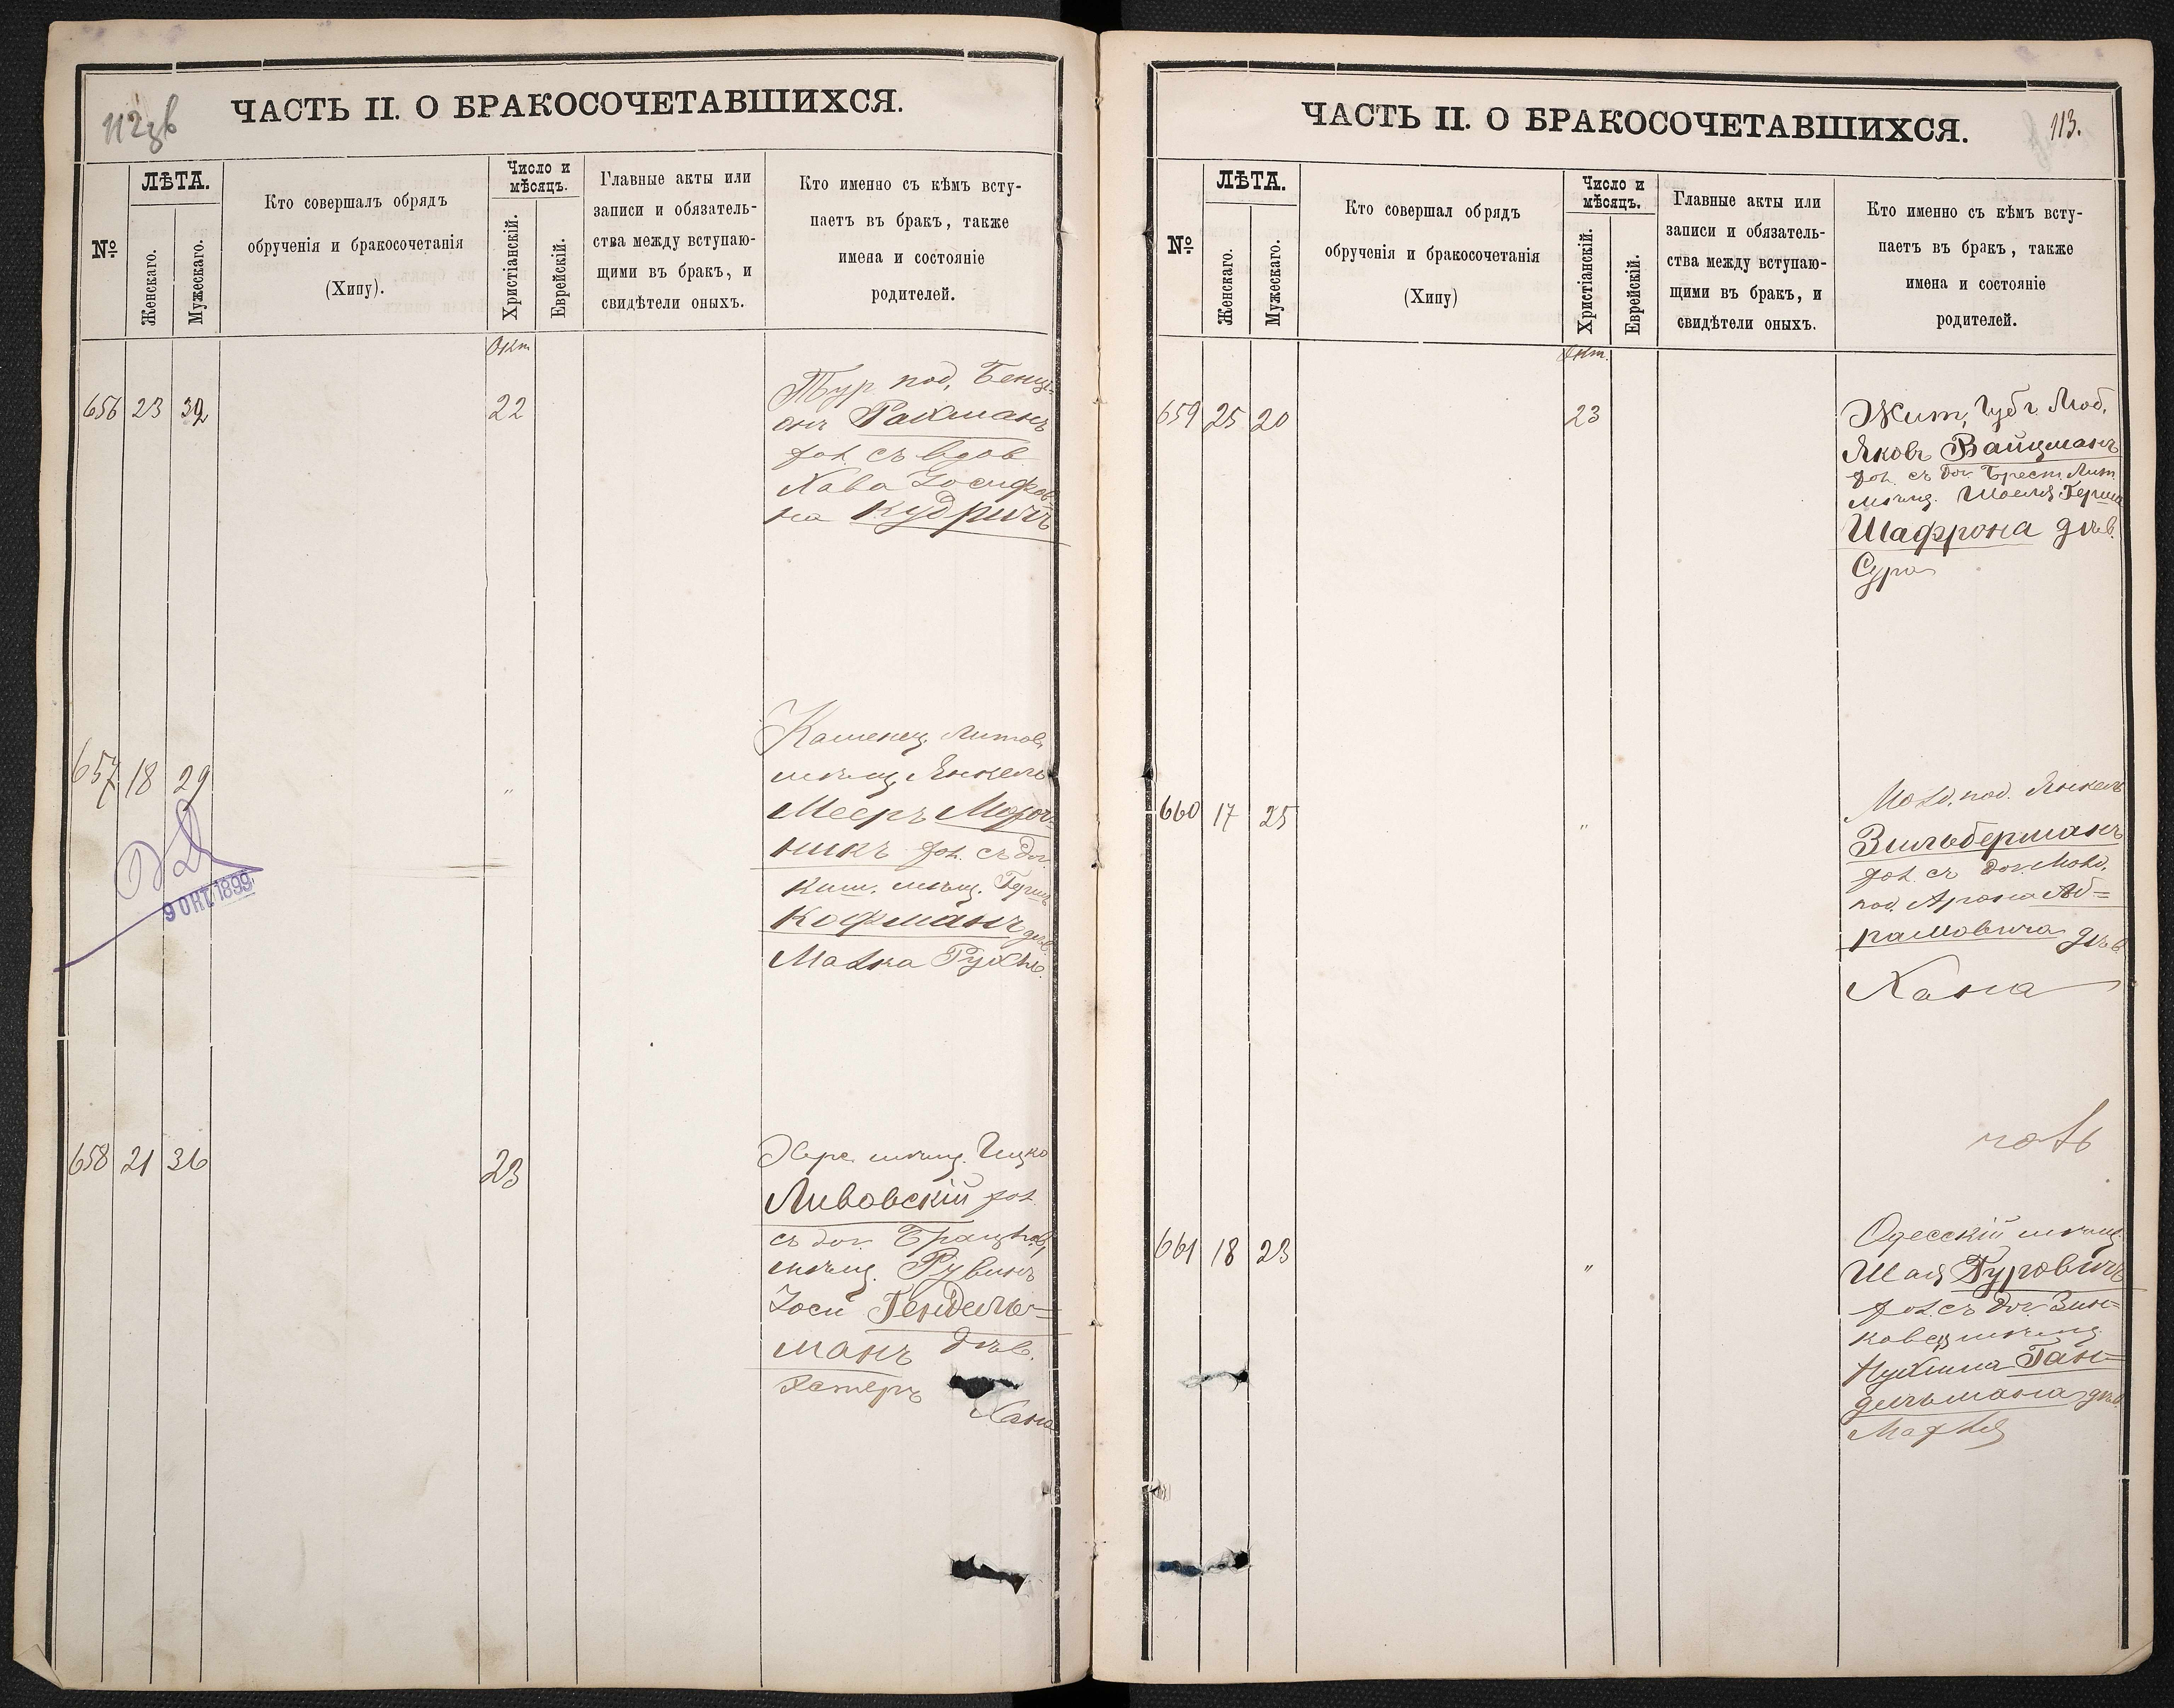 112 об
ЧАСТЬ II. О БРАКОСОЧЕТАВШИХСЯ.
№
ЛѢТА.
Женскаго.
Мужескаго.
Кто совершалъ обрядъ
обрученія и бракосочетанія
(Хипу).
Число и
мѣсяцъ.
Христіанскій.
Еврейскій.
Главные акты или
записи и обязатель-
ства между вступаю-
щими въ бракъ, и
свидѣтели оныхъ.
Кто именно съ кѣмъ всту-
паетъ въ бракъ, также
имена и состояніе
родителей.
Окт
656 23 32 22
Тур. под. Бенці-
онъ Рахманъ
хол. съ вдов
Хава Іосифов-
на Кудричъ
657 18 29 "
Каменец. Литов.
мѣщ Янкель
Мееръ
никъ хол. съ доч.
Киш. мѣщ. Герша
Кофманъ дѣв.
Малка Рухль
9 ОКТ 1899
658 21 36 23
Херс мѣщ. Ицко
Ливовскій хол
съ доч.
мѣщ. Рувинъ
Іосн Гендель-
манъ дѣв.
Эстеръ
Хана
ЧАСТЬ II. О БРАКОСОЧЕТАВШИХСЯ.
113.
№
ЛѢТА.
Женскаго.
Мужескаго.
Кто совершал обрядъ
обрученія и бракосочетанія
(Хипу)
Число и
мѣсяцъ.
Христіанскій.
Еврейскій.
Главные акты или
записи и обязатель-
ства между вступаю-
щими въ бракъ, и
свидѣтели оныхъ.
Кто именно съ кѣмъ всту-
паетъ въ бракъ, также
имена и состояніе
родителей.
Окт.
659 25 20 23
Жит. Губ.
Яковъ Вайцманъ
хол. съ доч. Брест. Лит
мѣщ. Шоеля Герша
Шафрона дѣв.
Сура
660 17 25 "
под. Янкель
Зильберманъ
хол. съ доч.
под. Арона Аб-
рамовича дѣв
Хана
661 18 23 "
Одесскій мѣщ.
Шая Гуровичъ
хол. съ доч Зин-
ковец мѣщ
Нухима Ган-
дельмана дѣв.